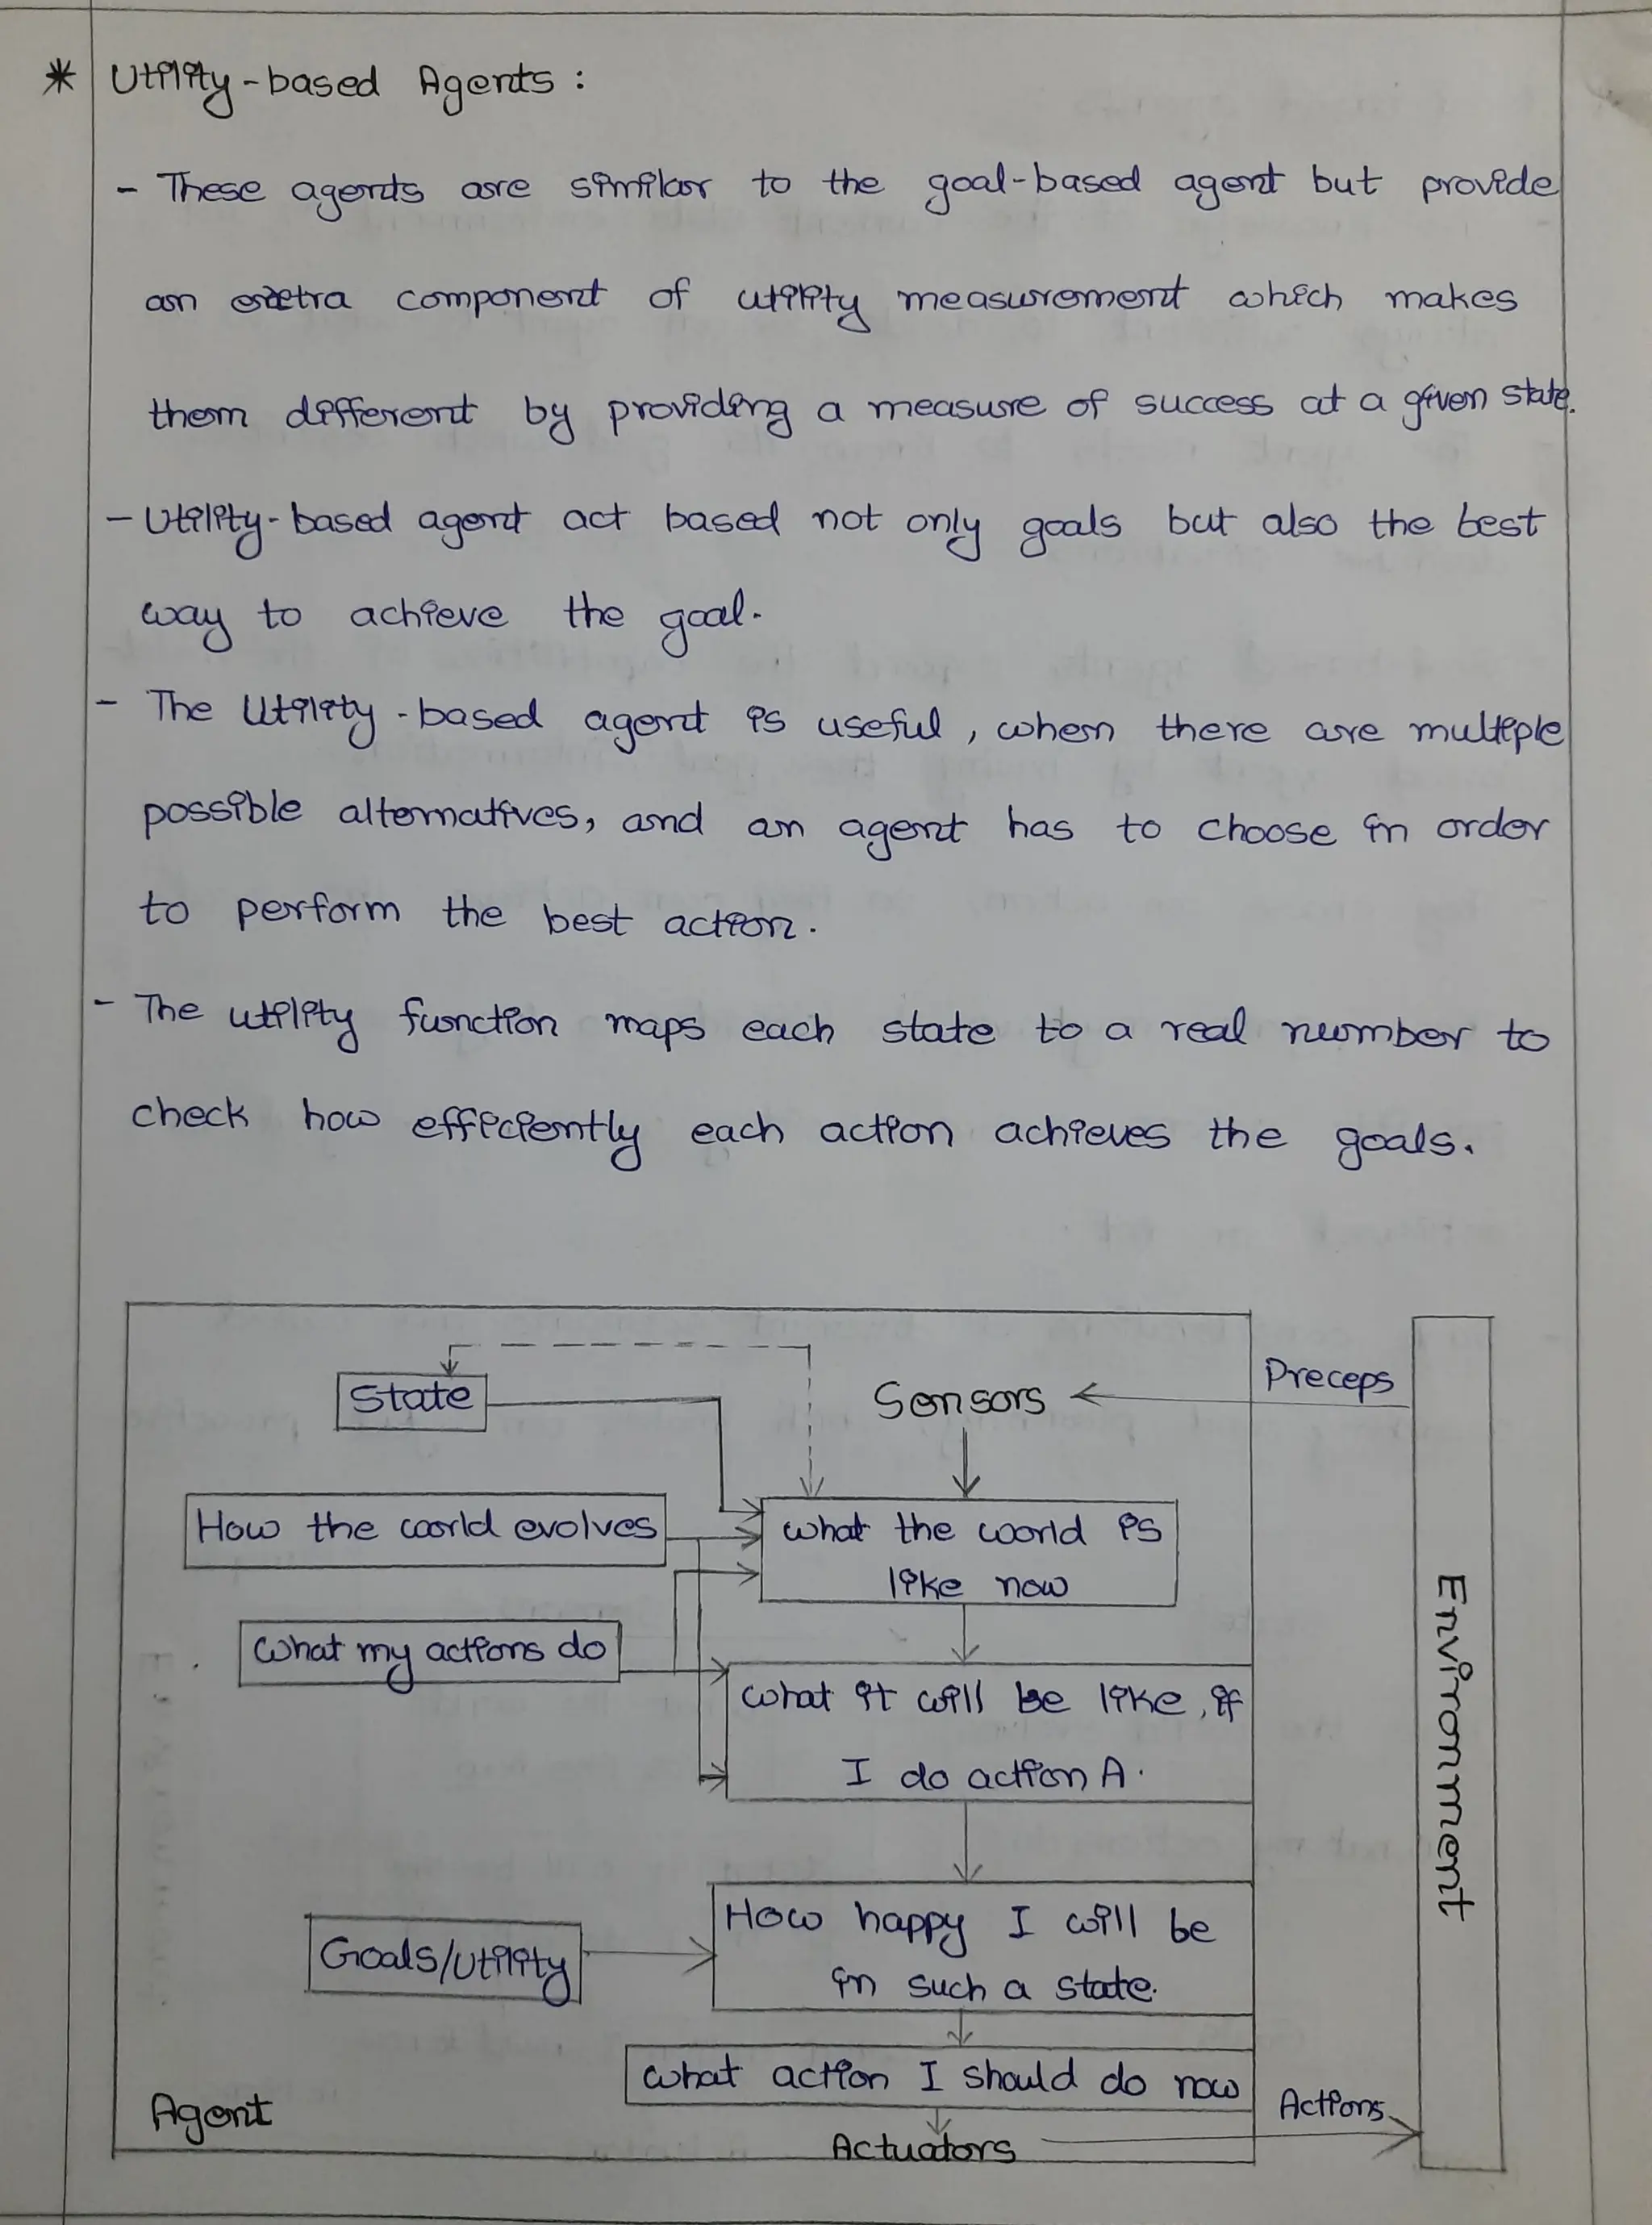 * Utility-based Agents :
- These agents are similar to the goal-based agent but provide
an extra component of utility measurement which makes
them different by providing a measure of success at a given state.
- Utility-based agent act based not only goals but also the best
way to achieve the goal.
- The Utility-based agent is useful, when there are multiple
possible alternatives, and an agent has to choose in order
to perform the best action.
- The utility function maps each state to a real number to
check how efficiently each action achieves the goals.
State
Sensors
Preceps
How the world evolves
what the world is
like now
What my actions do
what it will be like, if
I do action A.
Environment
Goals/Utility
How happy I will be
in such a state.
what action I should do now
Agent
Actuators
Actions